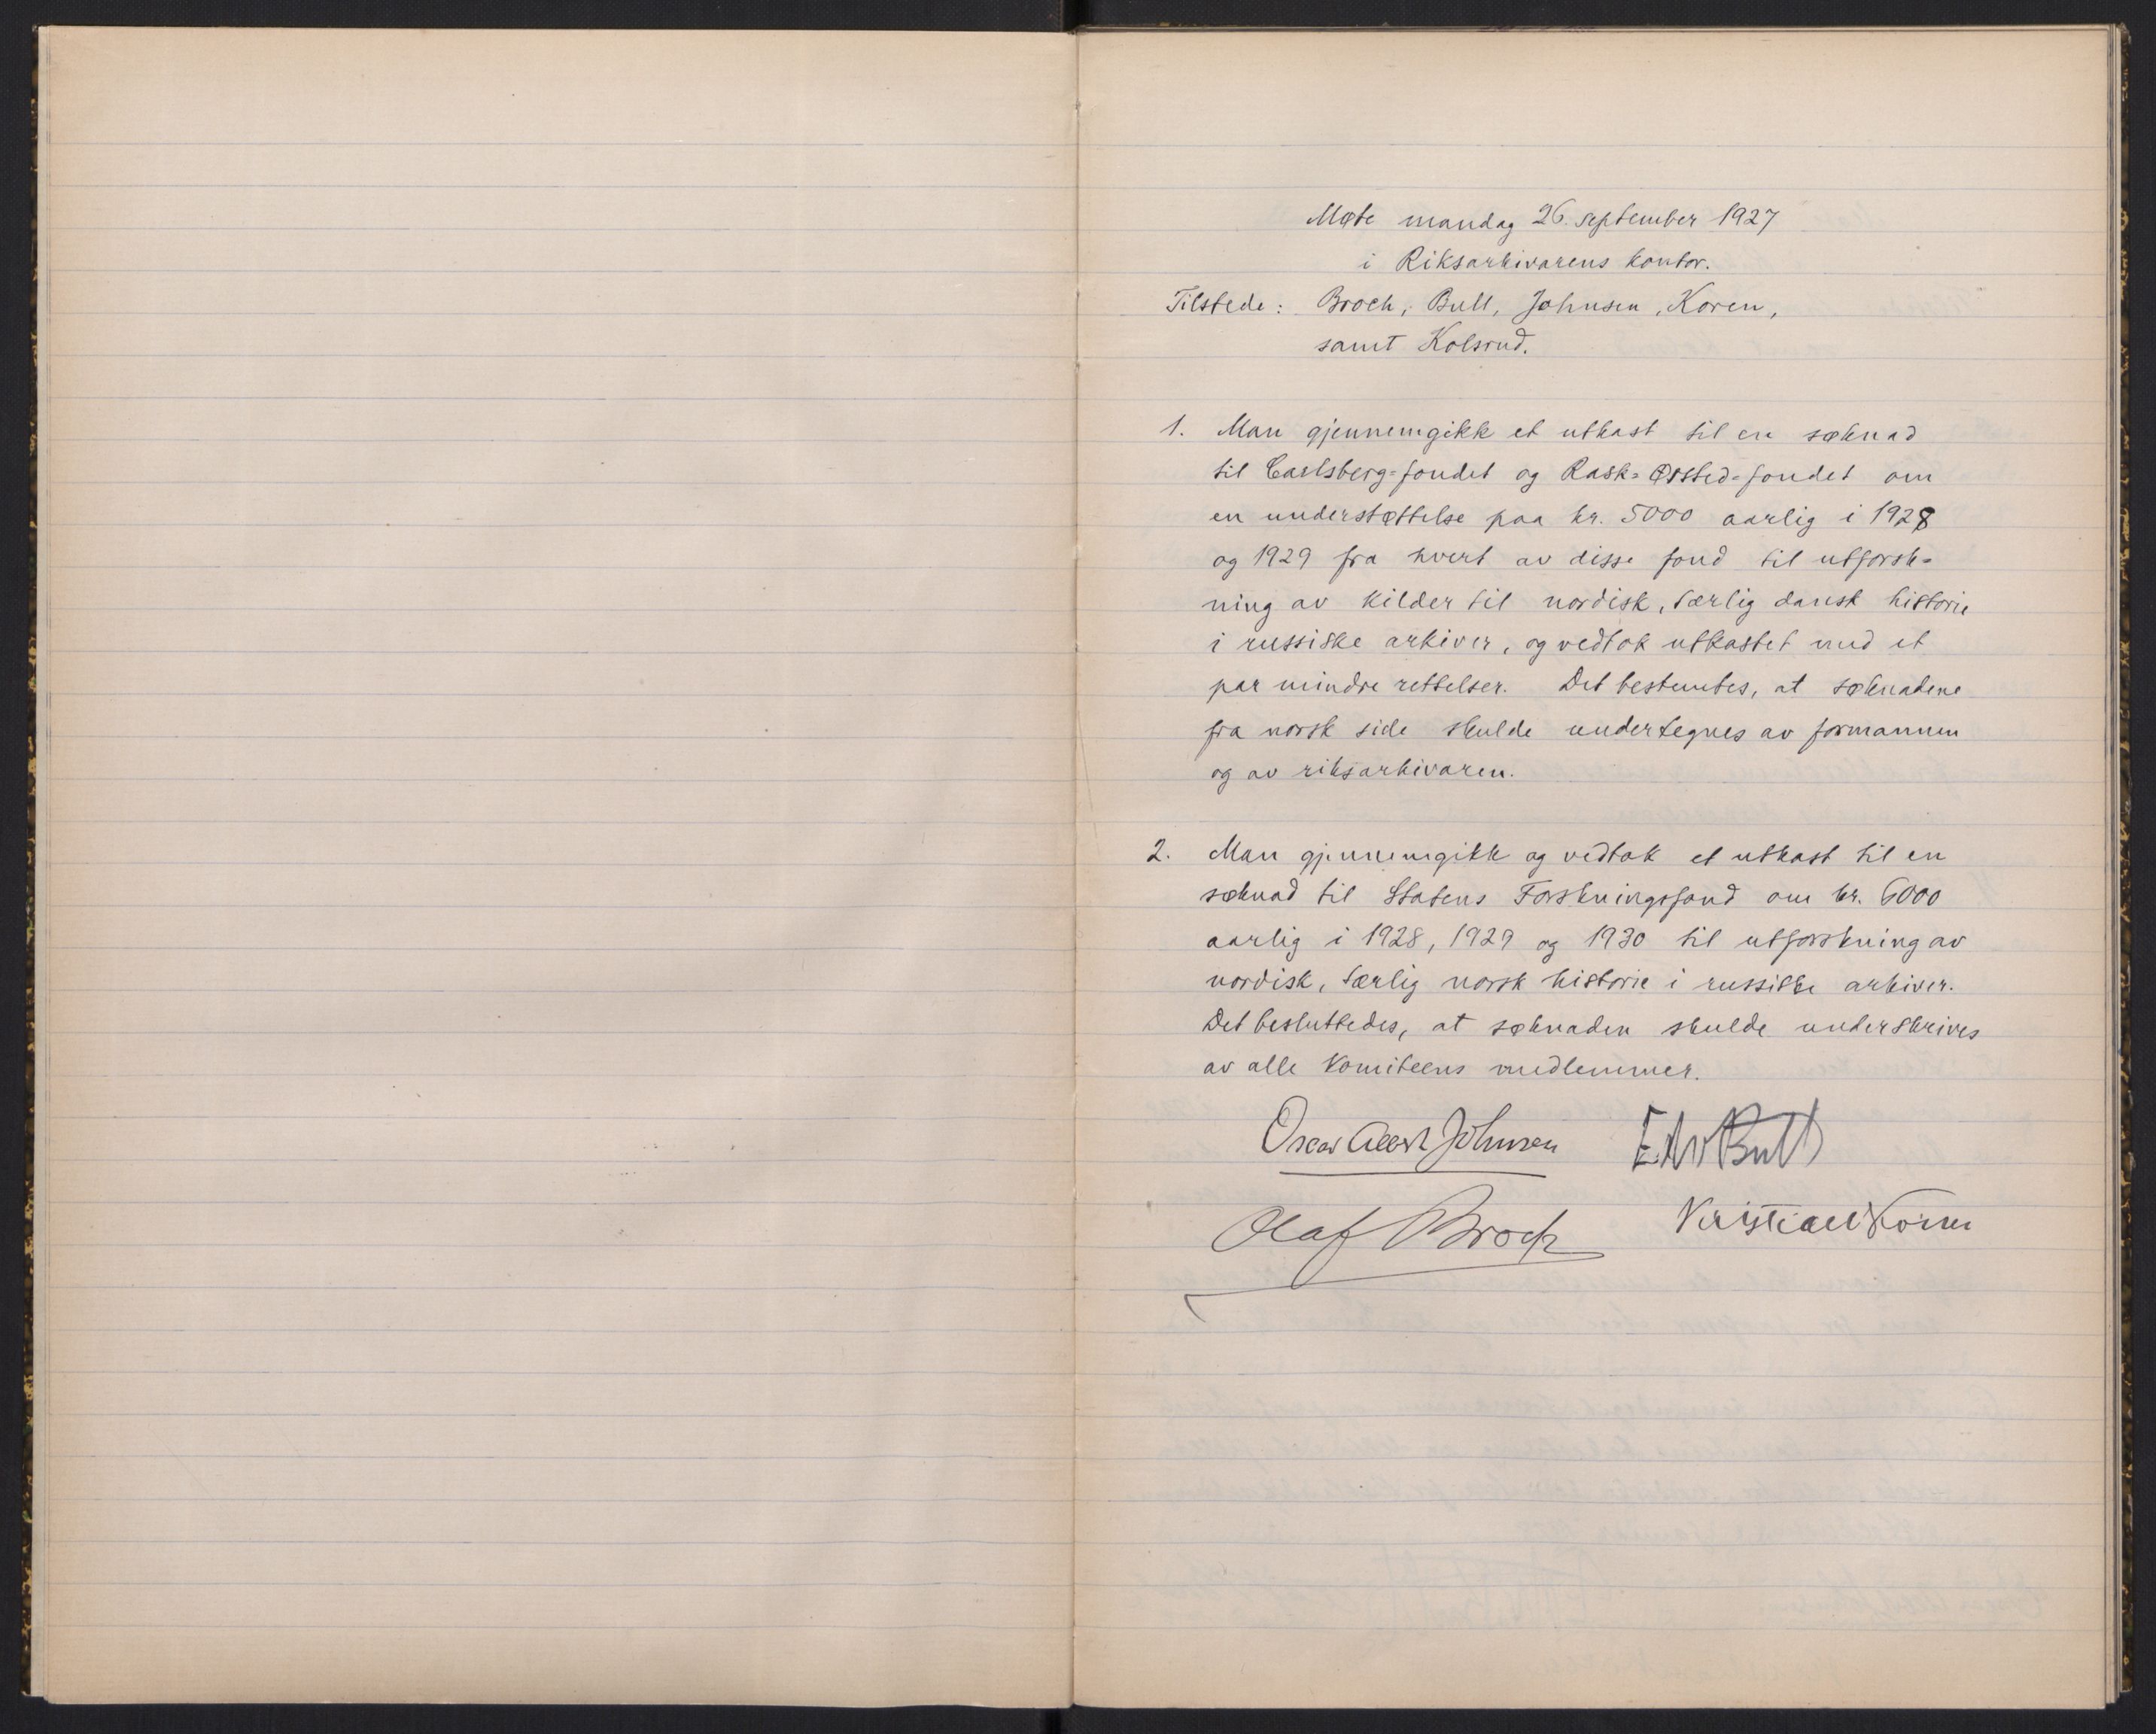 Møte mandag 26. september 1927
i Riksarkivarens kontor.
Tilstede: Broch, Bull, Johnsen, Koren,
samt Kolsrud.
1. Man gjennemgikk et utkast til en søknad
til Carlsberg=fondet og Rask=Ørsted=fondet om
en understøttelse paa kr. 5000 aarlig i 1928
og 1929 fra hvert av disse fond til utforsk=
ning av kilder til nordisk, særlig dansk historie
i russiske arkiver, og vedtok utkastet med et
par mindre rettelser. Det bestemtes, at søknadene
fra norsk side skulde undertegnes av formannen
og av riksarkivaren.
2. Man gjennemgikk og vedtok et utkast til en
søknad til Statens Forskningsfond om kr. 6000
aarlig i 1928, 1929 og 1930 til utforskning av
nordisk, særlig norsk historie i russiske arkiver.
Det besluttedes, at søknaden skulde underskrives
av alle komiteens medlemmer.
Oscar Albert Johnsen Edv Bull
Olaf Broch Kristian Koren